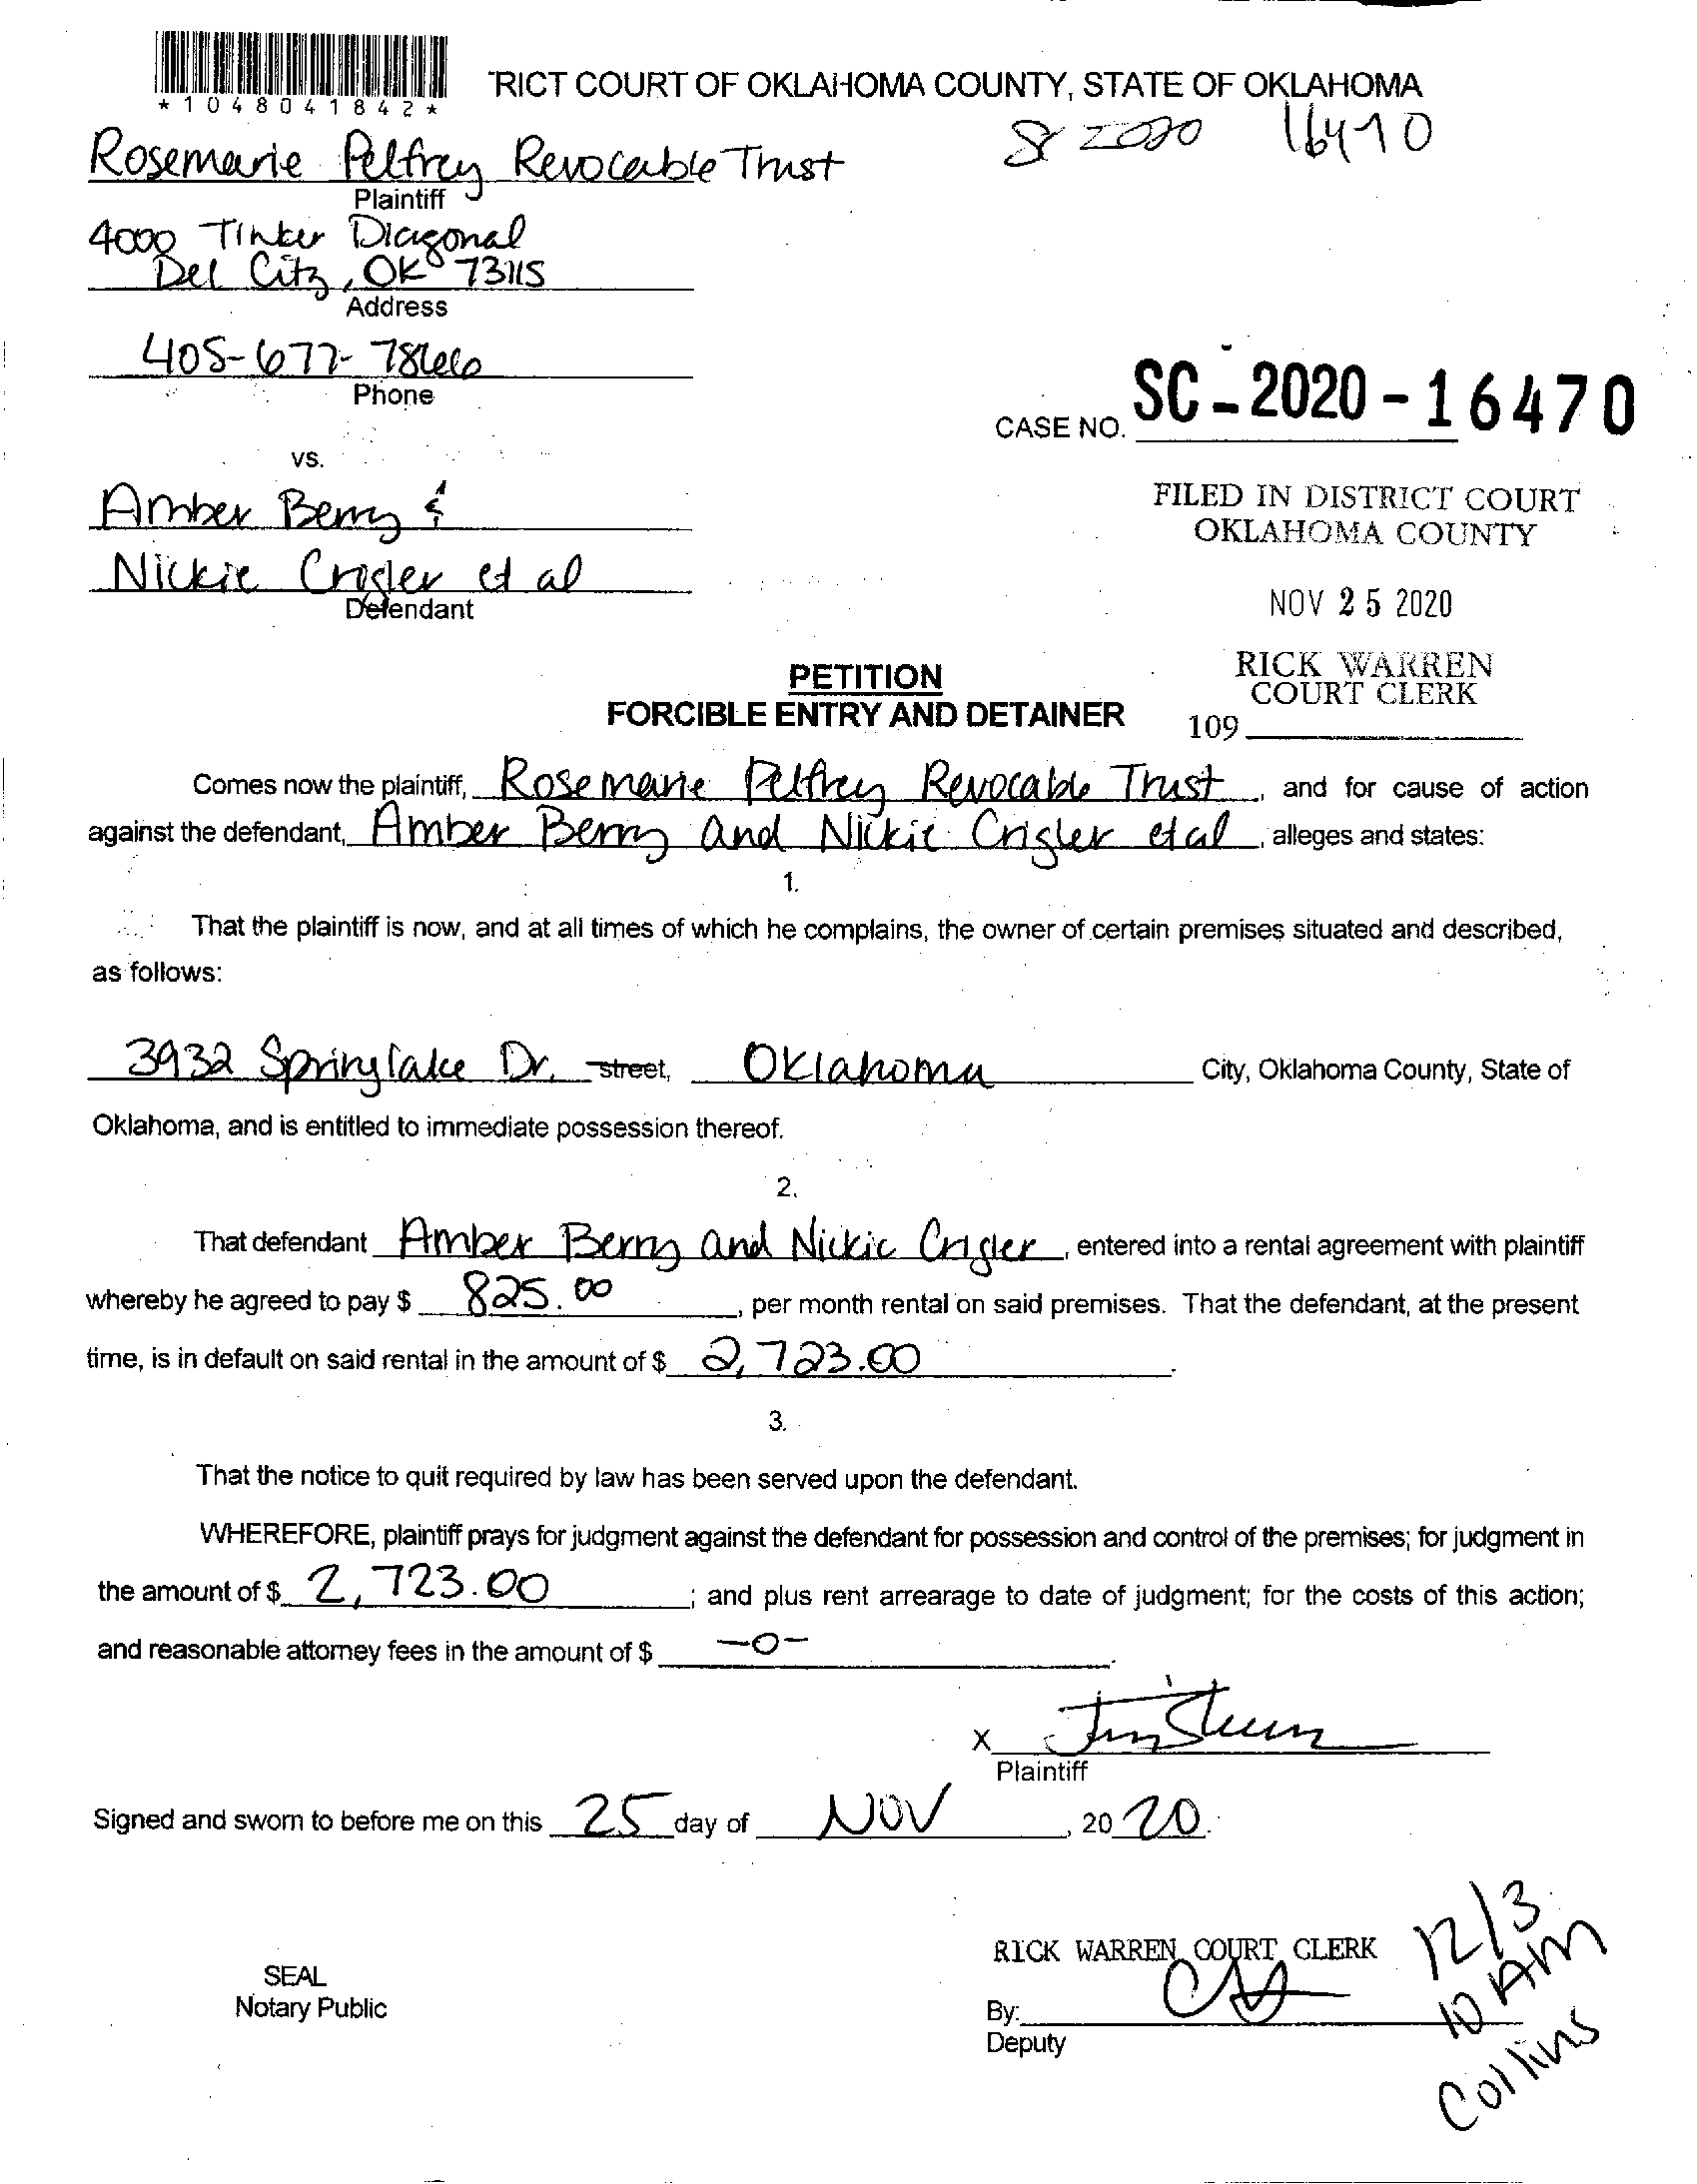 *1048041842*
RICT COURT OF OKLAHOMA COUNTY, STATE OF OKLAHOMA
2020 16470
Rosemarie Pelfrey Revocable Trust
Plaintiff
4000 Tinker Diagonal
Del City, OK 73115
Address
405-677-7866
Phone
CASE NO. SC-2020-16470
vs.
Amber Berry &
Nickie Crigler et al
Defendant
FILED IN DISTRICT COURT
OKLAHOMA COUNTY
NOV 25 2020
RICK WARREN
COURT CLERK
109
PETITION
FORCIBLE ENTRY AND DETAINER
Comes now the plaintiff, Rosemarie Pelfrey Revocable Trust, and for cause of action
against the defendant, Amber Berry and Nickie Crigler et al, alleges and states:
1.
That the plaintiff is now, and at all times of which he complains, the owner of certain premises situated and described,
as follows:
3932 Springlake Dr. street, Oklahoma City, Oklahoma County, State of
Oklahoma, and is entitled to immediate possession thereof.
2.
That defendant Amber Berry and Nickie Crigler, entered into a rental agreement with plaintiff
whereby he agreed to pay $ 825.00, per month rental on said premises. That the defendant, at the present
time, is in default on said rental in the amount of $ 2,723.00.
3.
That the notice to quit required by law has been served upon the defendant.
WHEREFORE, plaintiff prays for judgment against the defendant for possession and control of the premises; for judgment in
the amount of $ 2,723.00; and plus rent arrearage to date of judgment; for the costs of this action;
and reasonable attorney fees in the amount of $ -0-.
X
Plaintiff
Signed and sworn to before me on this 25 day of NOV, 2020.
RICK WARREN, COURT CLERK
SEAL
Notary Public
By:
Deputy
12/3
10 AM
Collins